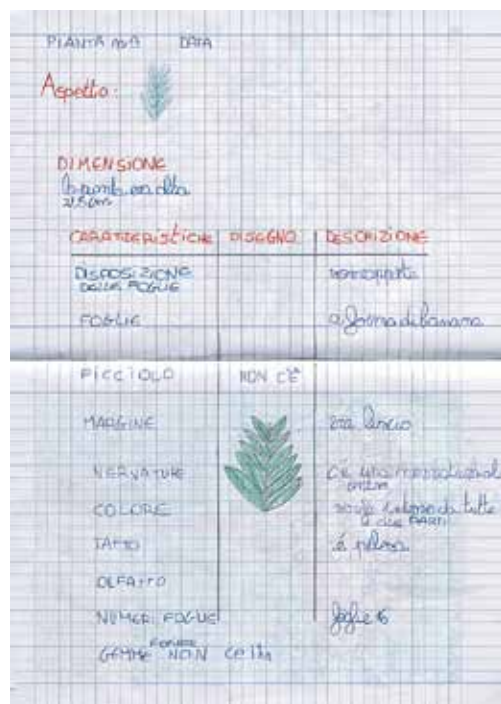 PIANTA DATA
Aspetto:
DIMENSIONE
la pianta era alta
CARATTERISTICHE DISEGNO DESCRIZIONE
DISPOSIZIONE DELLE FOGLIE
FOGLIE a forma di banana
PICCIOLO NON C'È
MARGINE era liscio
NERVATURE C'è una
COLORE verde intenso da tutte e due PARTI
TATTO è pelosa
OLFATTO
NUMERI FOGLIE foglie 6
GEMME FORSE NON ce l'ha